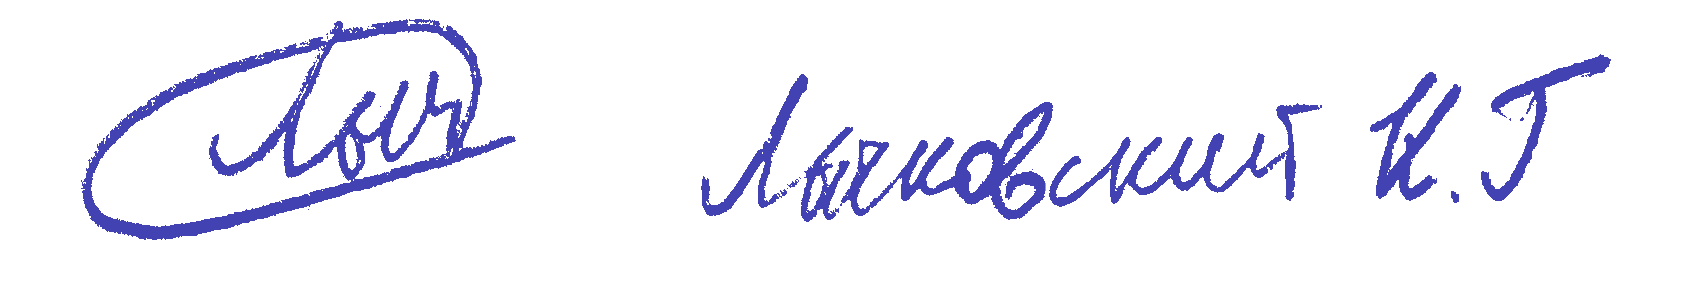 Лыч Лычковский К.Г